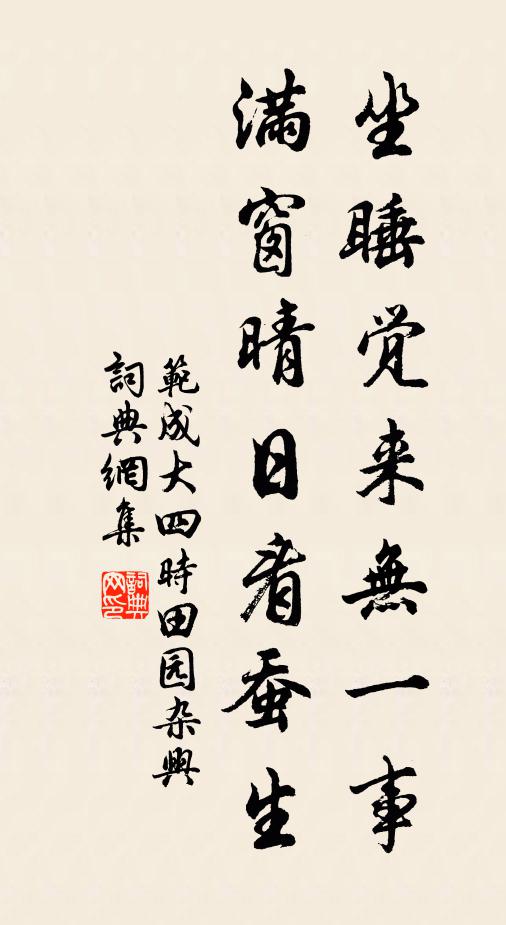 坐睡觉来無一事
满窗晴日看蚕生
範成大四時田园杂興
詞典網集
詞典网印